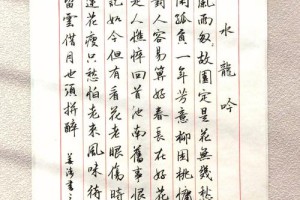 水龍吟
風雨匆故園定是花無幾愁
閒孤負一年芳意柳困桃慵
對人容易算好春長在好花
是人憔悴回首池南舊事恨
記如今但有看花老眼傷時
逢花瘦只愁怕老來風味待
留雲借月也須拚醉